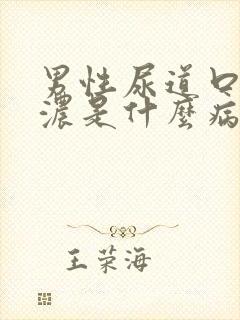 男性尿道口
濃是什麼病
王荣海